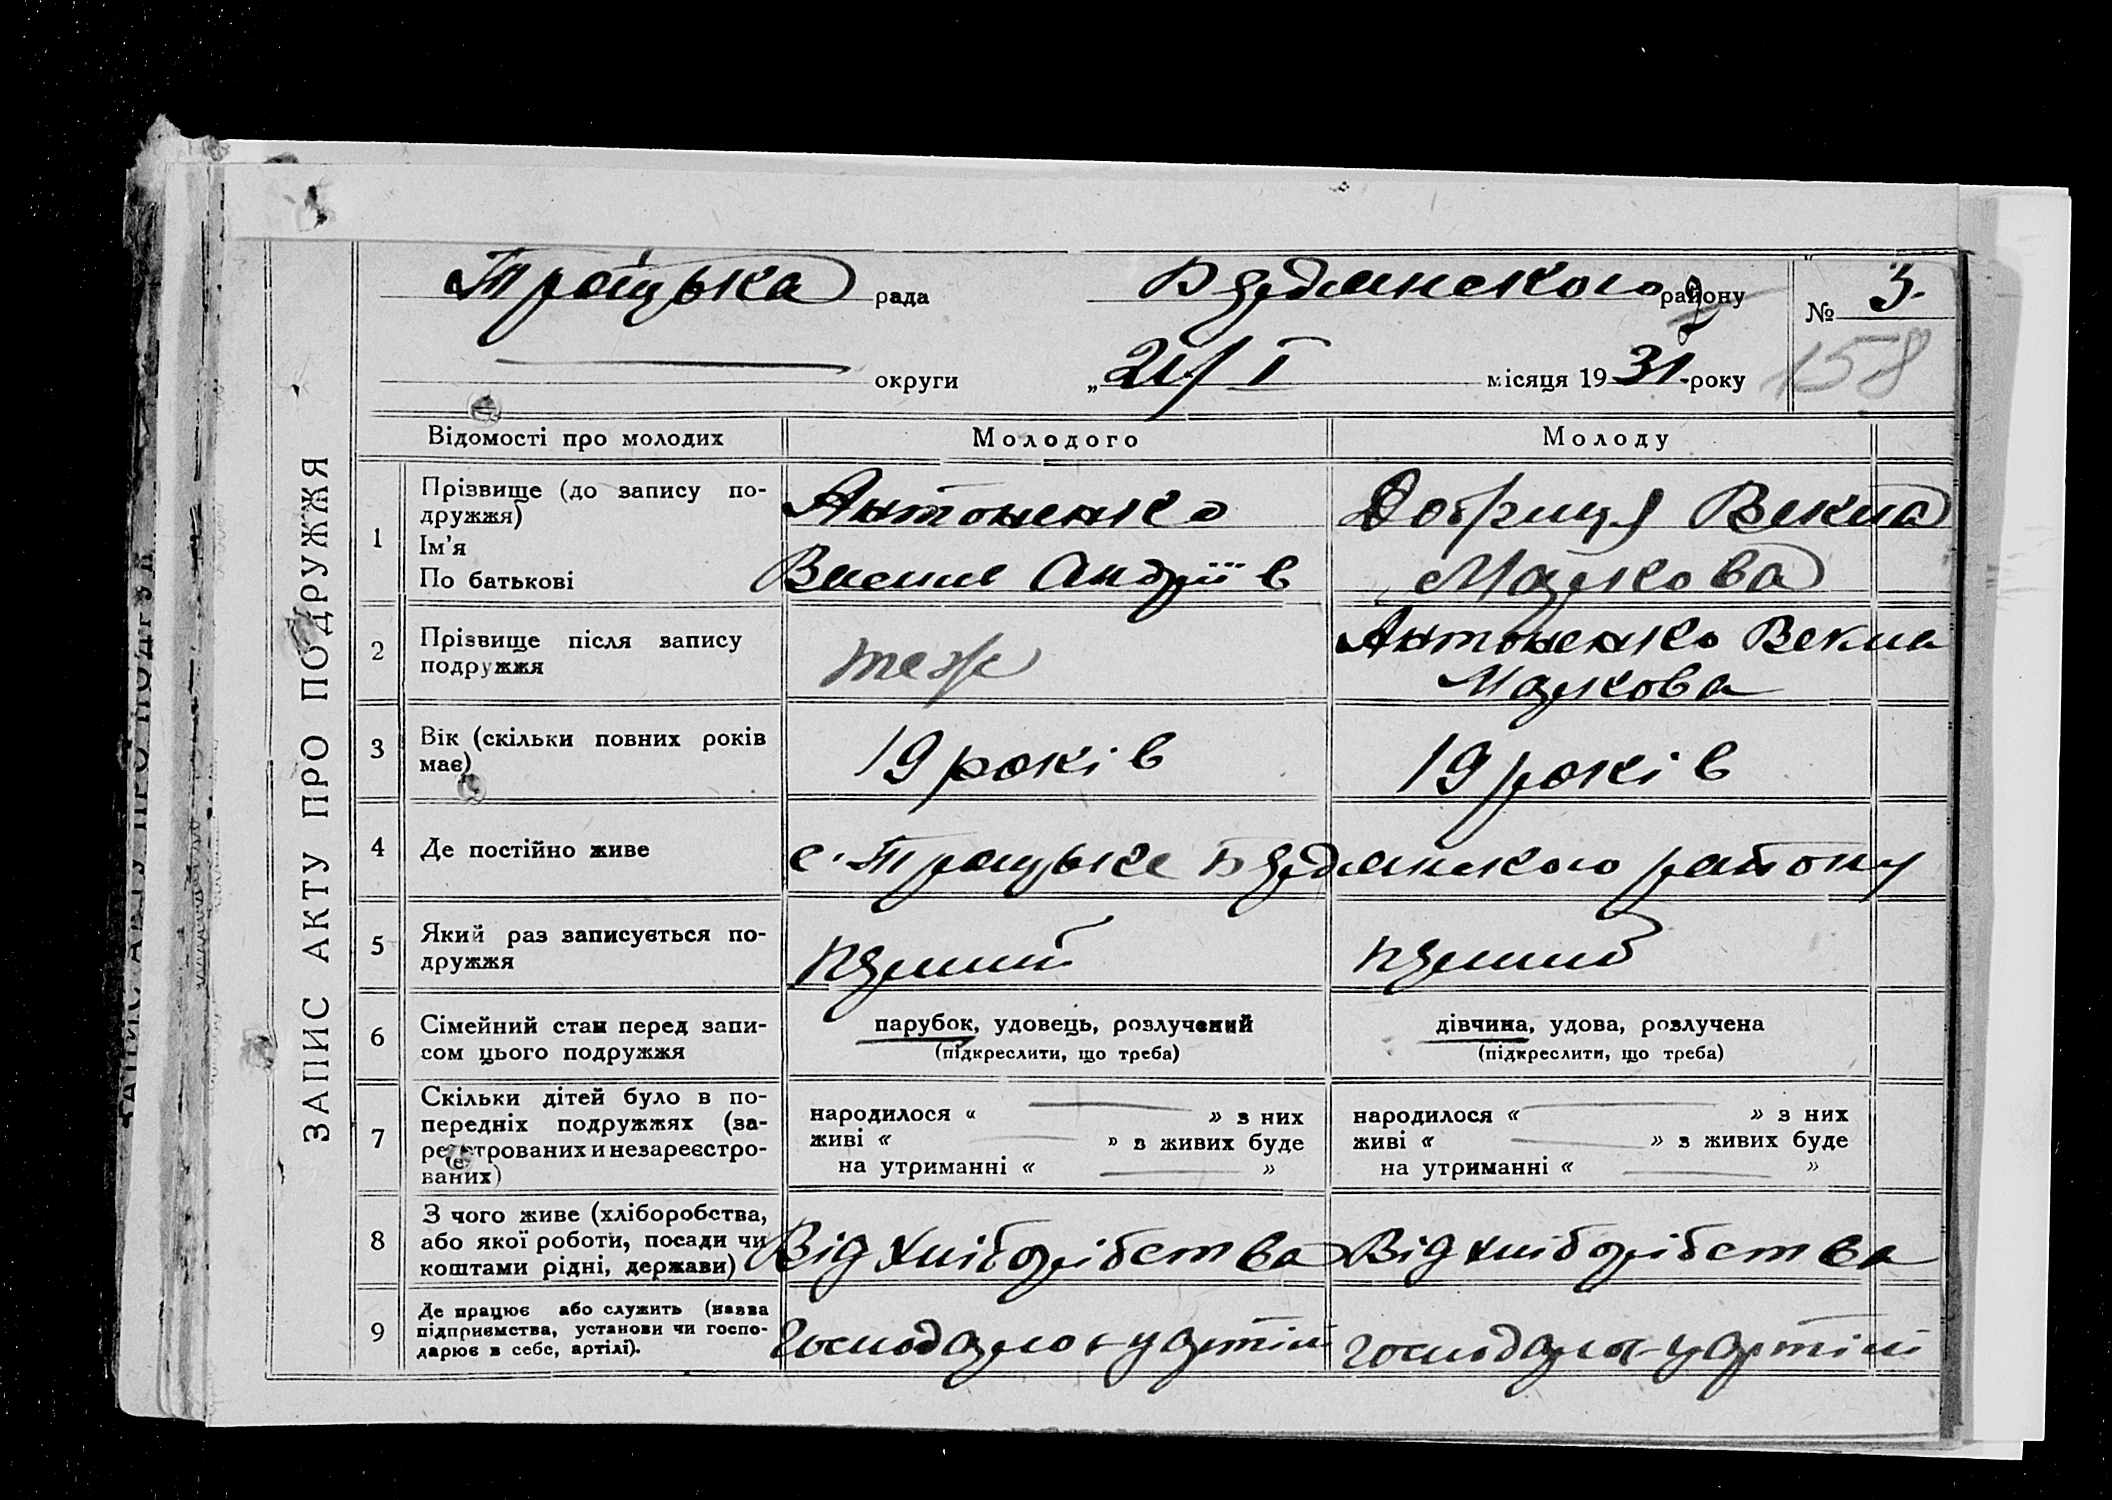 Троїцька рада Бердянского району № 3.
округи „21/I місяця 1931 року 158
ЗАПИС АКТУ ПРО ПОДРУЖЖЯ
Відомості про молодих Молодого Молоду
1 Прізвище (до запису подружжя) Антоненко Добриця Векла
Ім'я
По батькові Василь Андріїв Маркова
2 Прізвище після запису подружжя теж Антоненко Векла
Маркова
3 Вік (скільки повних років має) 19 років 19 років
4 Де постійно живе с. Троїцьке Бердянского району
5 Який раз записується подружжя перший перший
6 Сімейний стан перед записом цього подружжя парубок, удовець, розлучений дівчина, удова, розлучена
(підкреслити, що треба) (підкреслити, що треба)
7 Скільки дітей було в попередніх подружжях (зареєстрованих и незареєстрованих)
народилося « » з них народилося « » з них
живі « » в живих буде живі « » з живих буде
на утриманні « » на утриманні « »
8 З чого живе (хліборобства, або якої роботи, посади чи коштами рідні, держави) Від хліборібства Від хліборібства
9 Де працює або служить (назва підприємства, установи чи господарює в себе, артілі). Господарює у артілі господарює у артілі